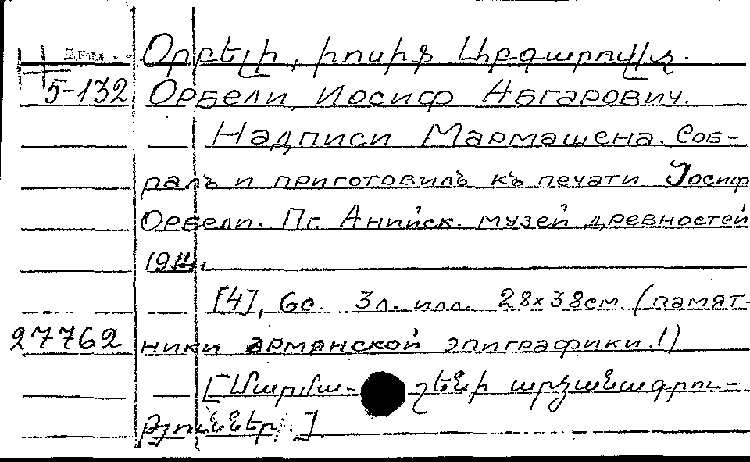 Օրբելի, Իոսիֆ Աբգարովիչ.
5-132 Орбели, Иосиф Абгарович.
Надписи Мармашена. Соб-
ралъ и приготовилъ къ печати Iосиф
Орбели. Пг. Анийск. музей древностей
1914.
[4], 6с. 3л. илл. 28x38см (памят-
27762 ники армянской эпиграфики.1)
[Մարմա- շենի արձանագրու-
թյուններ.]